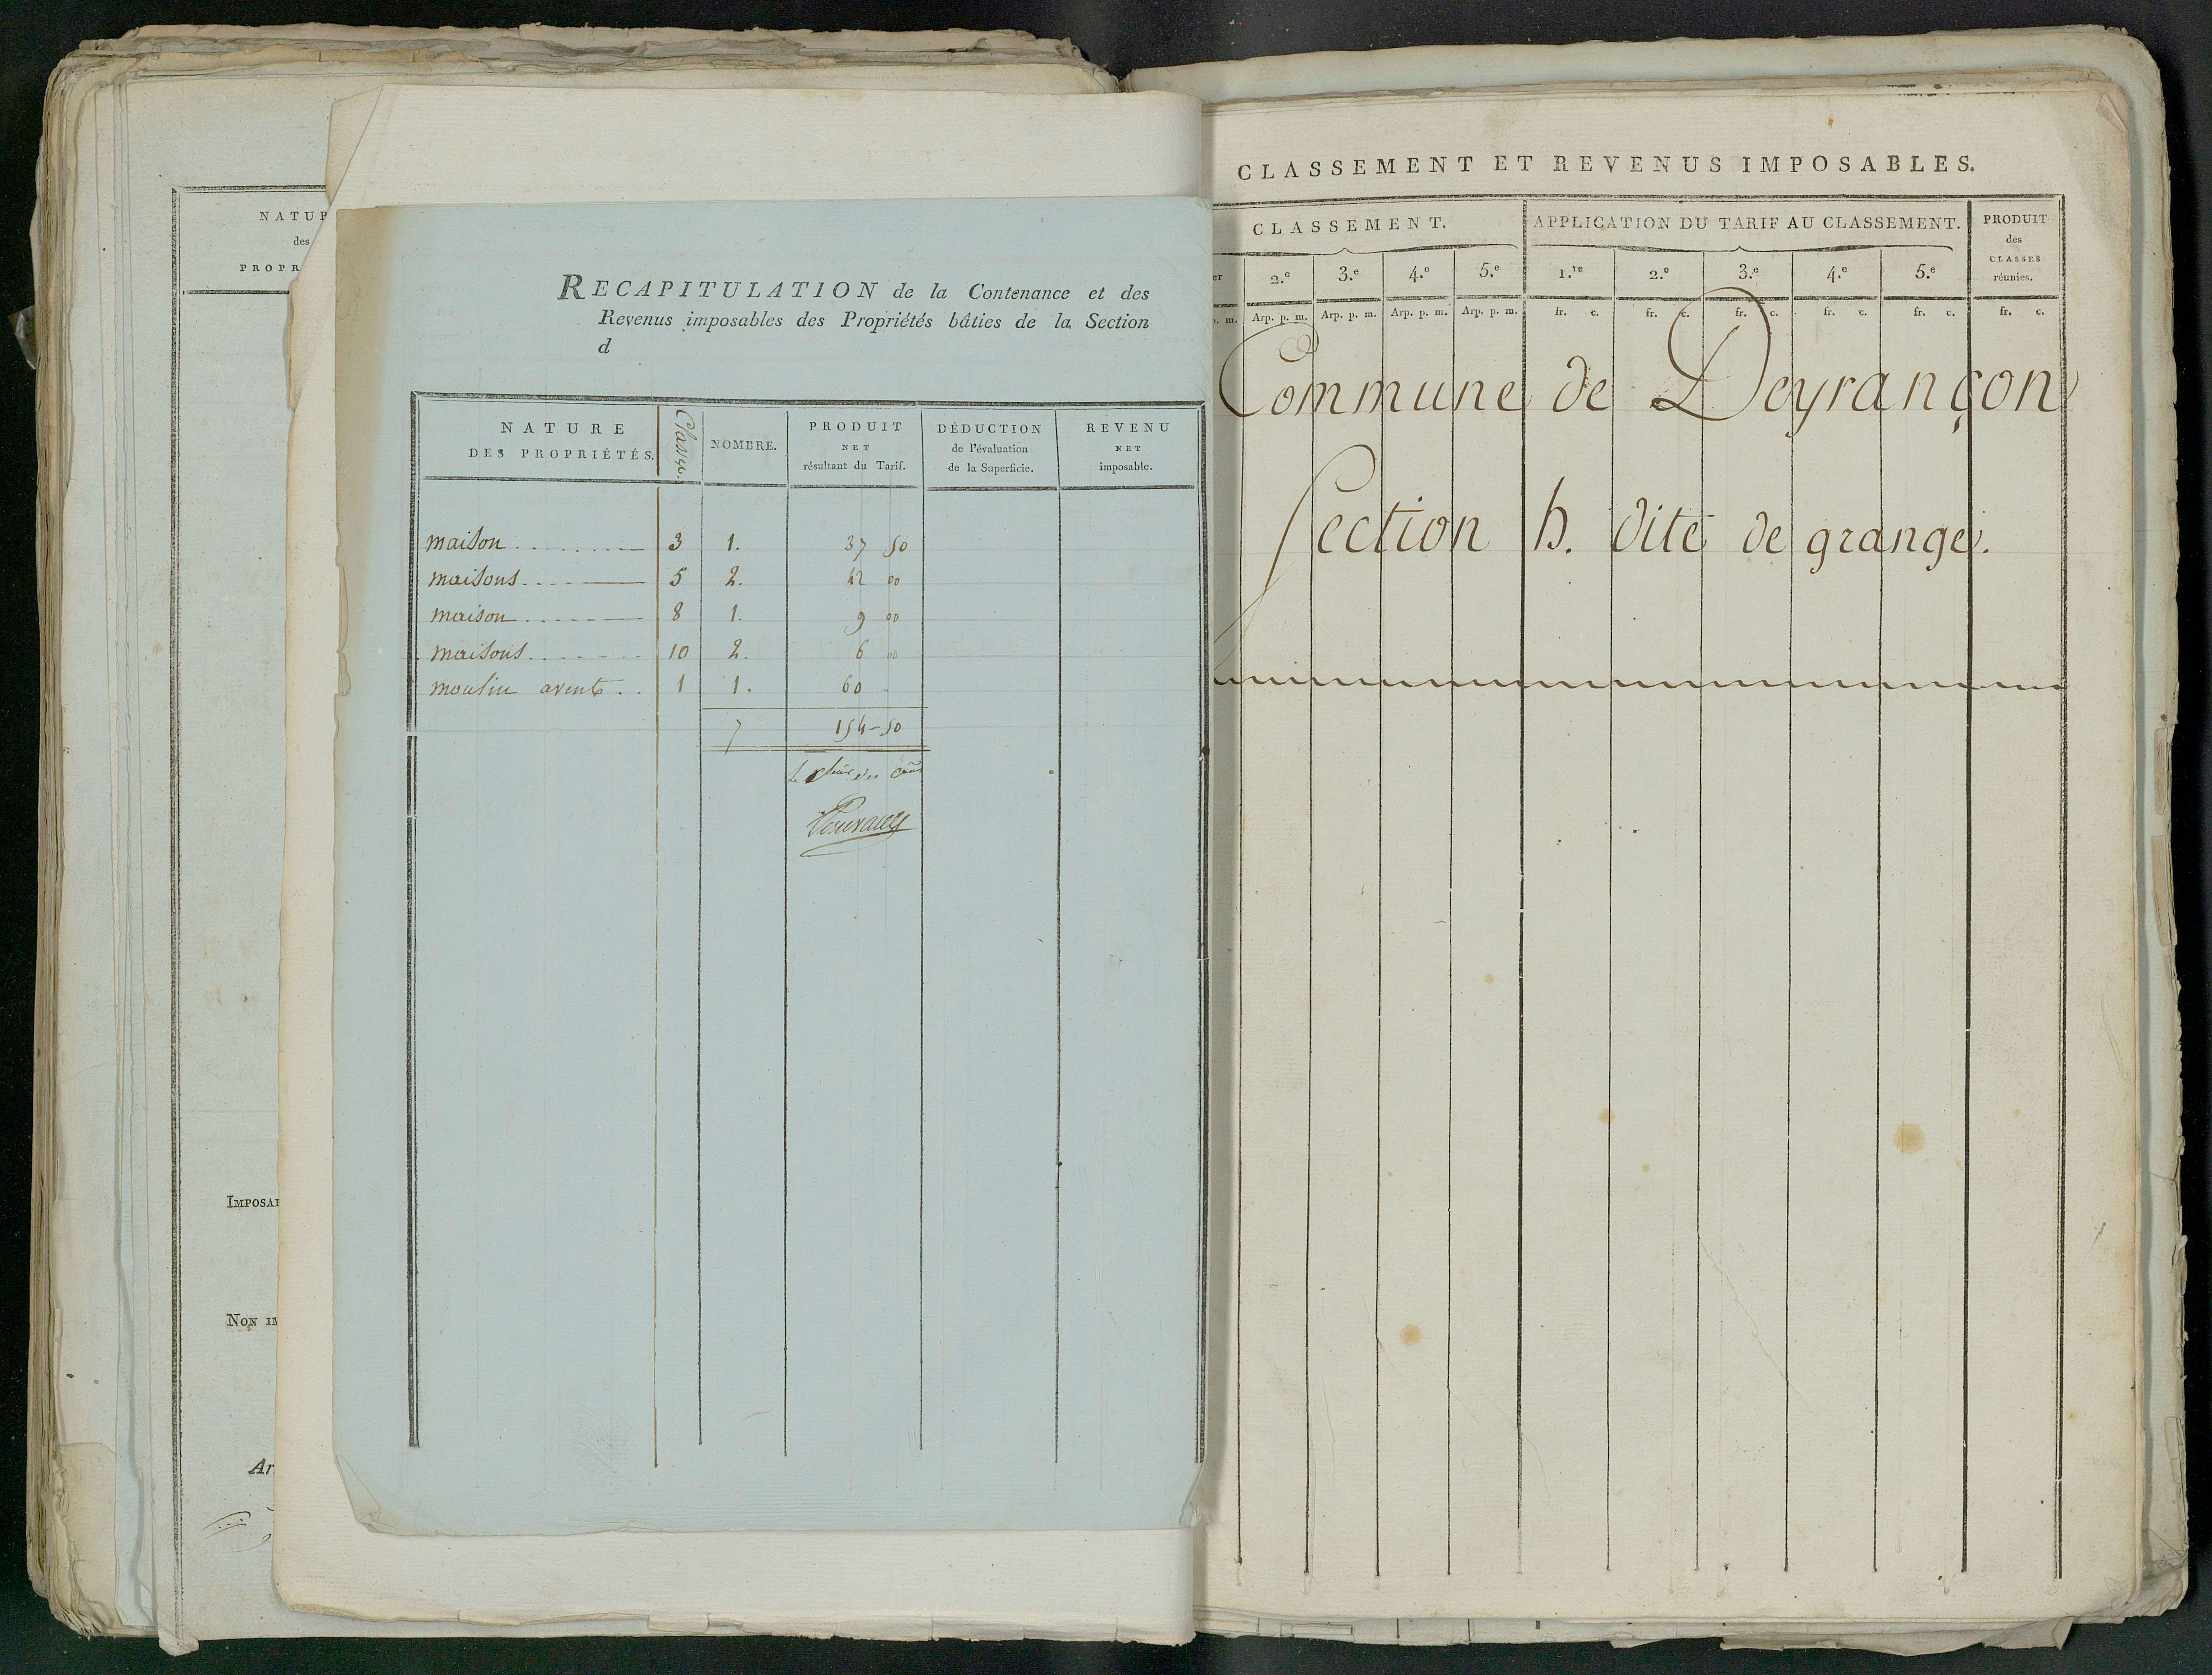 NATUR
des
PROPR
IMPOSA
NON IM
Ar
RECAPITULATION de la Contenance et des
Revenus imposables des Propriétés bâties de la Section
d
NATURE DES PROPRIÉTÉS. Classes. NOMBRE. PRODUIT NET résultant du Tarif. DÉDUCTION de l'évaluation de la Superficie. REVENU NET imposable.
maison 3 1. 37 50
maisons 5 2. 42 00
maison 8 1. 9 00
maisons 10 2. 6 00
moulin avents 1 1. 60
7 154-50
CLASSEMENT ET REVENUS IMPOSABLES.
CLASSEMENT. APPLICATION DU TARIF AU CLASSEMENT. PRODUIT des CLASSES réunies.
er 2.e 3.e 4.e 5.e 1.re 2.e 3.e 4.e 5.e
p. m. Arp. p. m. Arp. p. m. Arp. p. m. Arp. p. m. fr. c. fr. c. fr. c. fr. c. fr. c. fr. c.
Commune de Deyrançon
Section h. dite de grange.